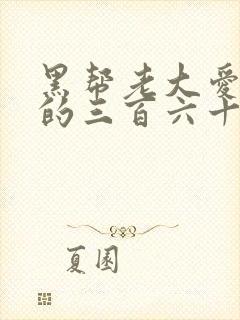 黑帮老大爱
的三百六十
夏园